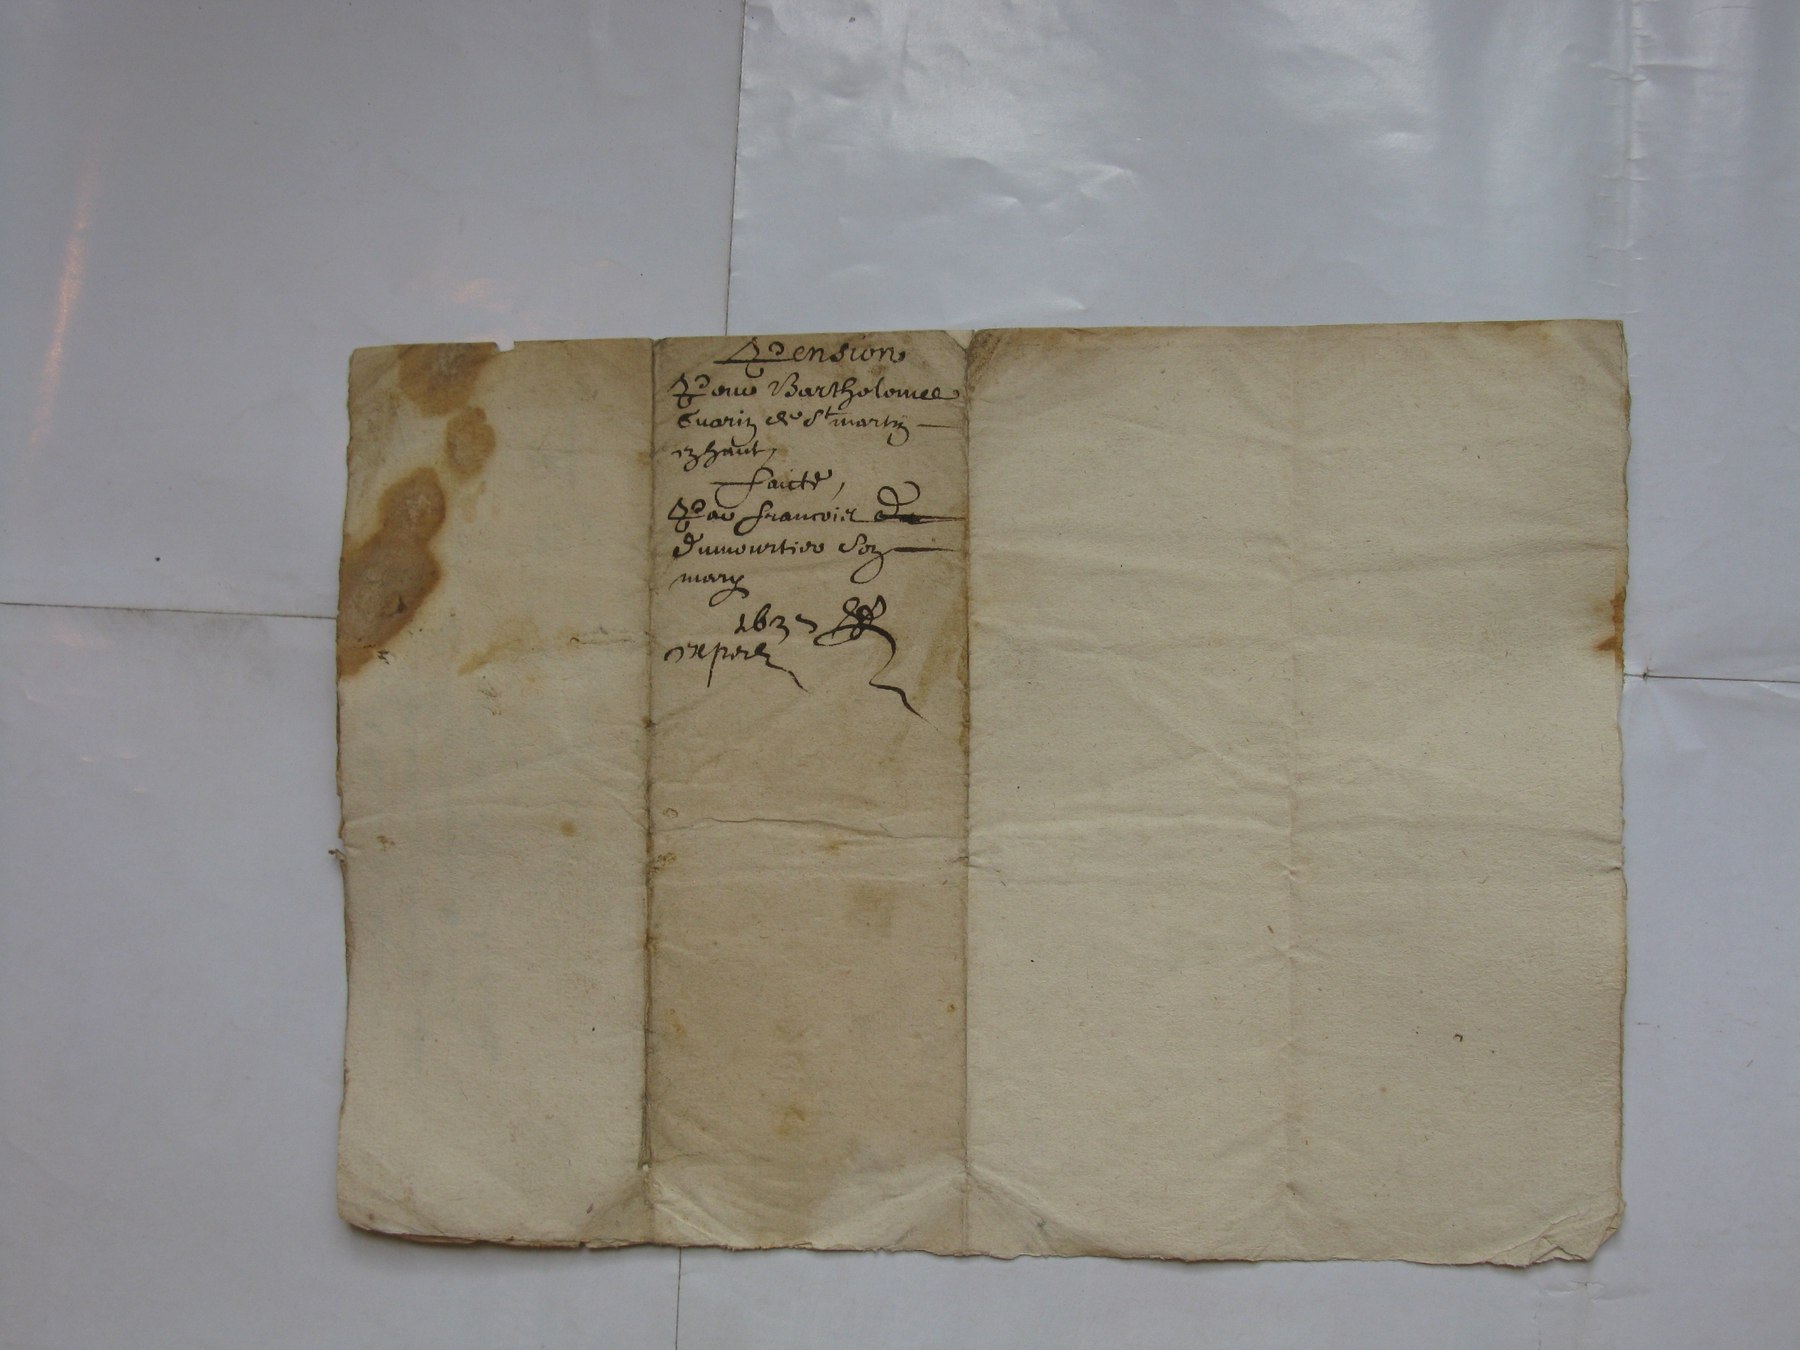 Pension
Pour Bartholomee
Guarin de St martin
enhaut,
faicte,
Par francois du
Dumourtier son
mary
1637
exped